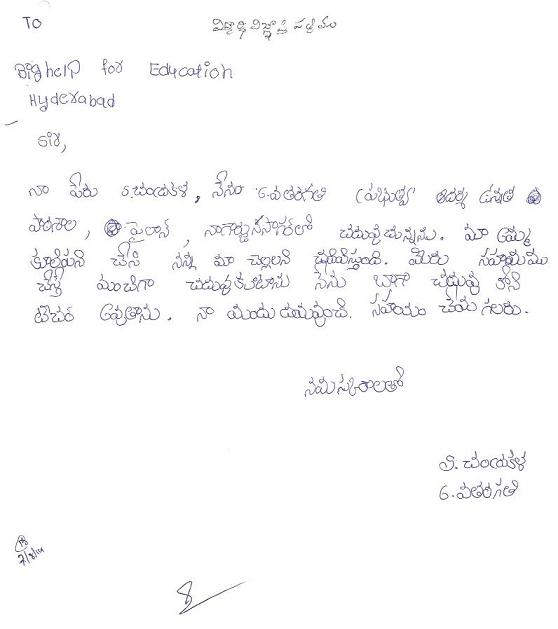 To
విద్యార్థి విజ్ఞాప్తి పత్రము
Bighelp for Education
Hyderabad
Sir,
నా పేరు S.చంద్రకళ, నేను 6.వతరగతి ప్రభుత్వ ఆదర్శ ఉన్నత
పాఠశాల, పైలాన్, నాగార్జునసాగర్‌లో చదువుచున్నను. మా అమ్మ
కూలిపని చేసి నన్ను మా చెల్లలని చదివిస్తుంది. మీరు సహాయము
చేస్తే మంచిగా చదువుకుంటాను నేను బాగా చదువు కొని
టీచర్ అవుతాను. నా యందు దయవుంచి. సహాయం చేయ గలరు.
నమస్కారాలతో
S. చంద్రకళ
6.వతరగతి
7/8/14